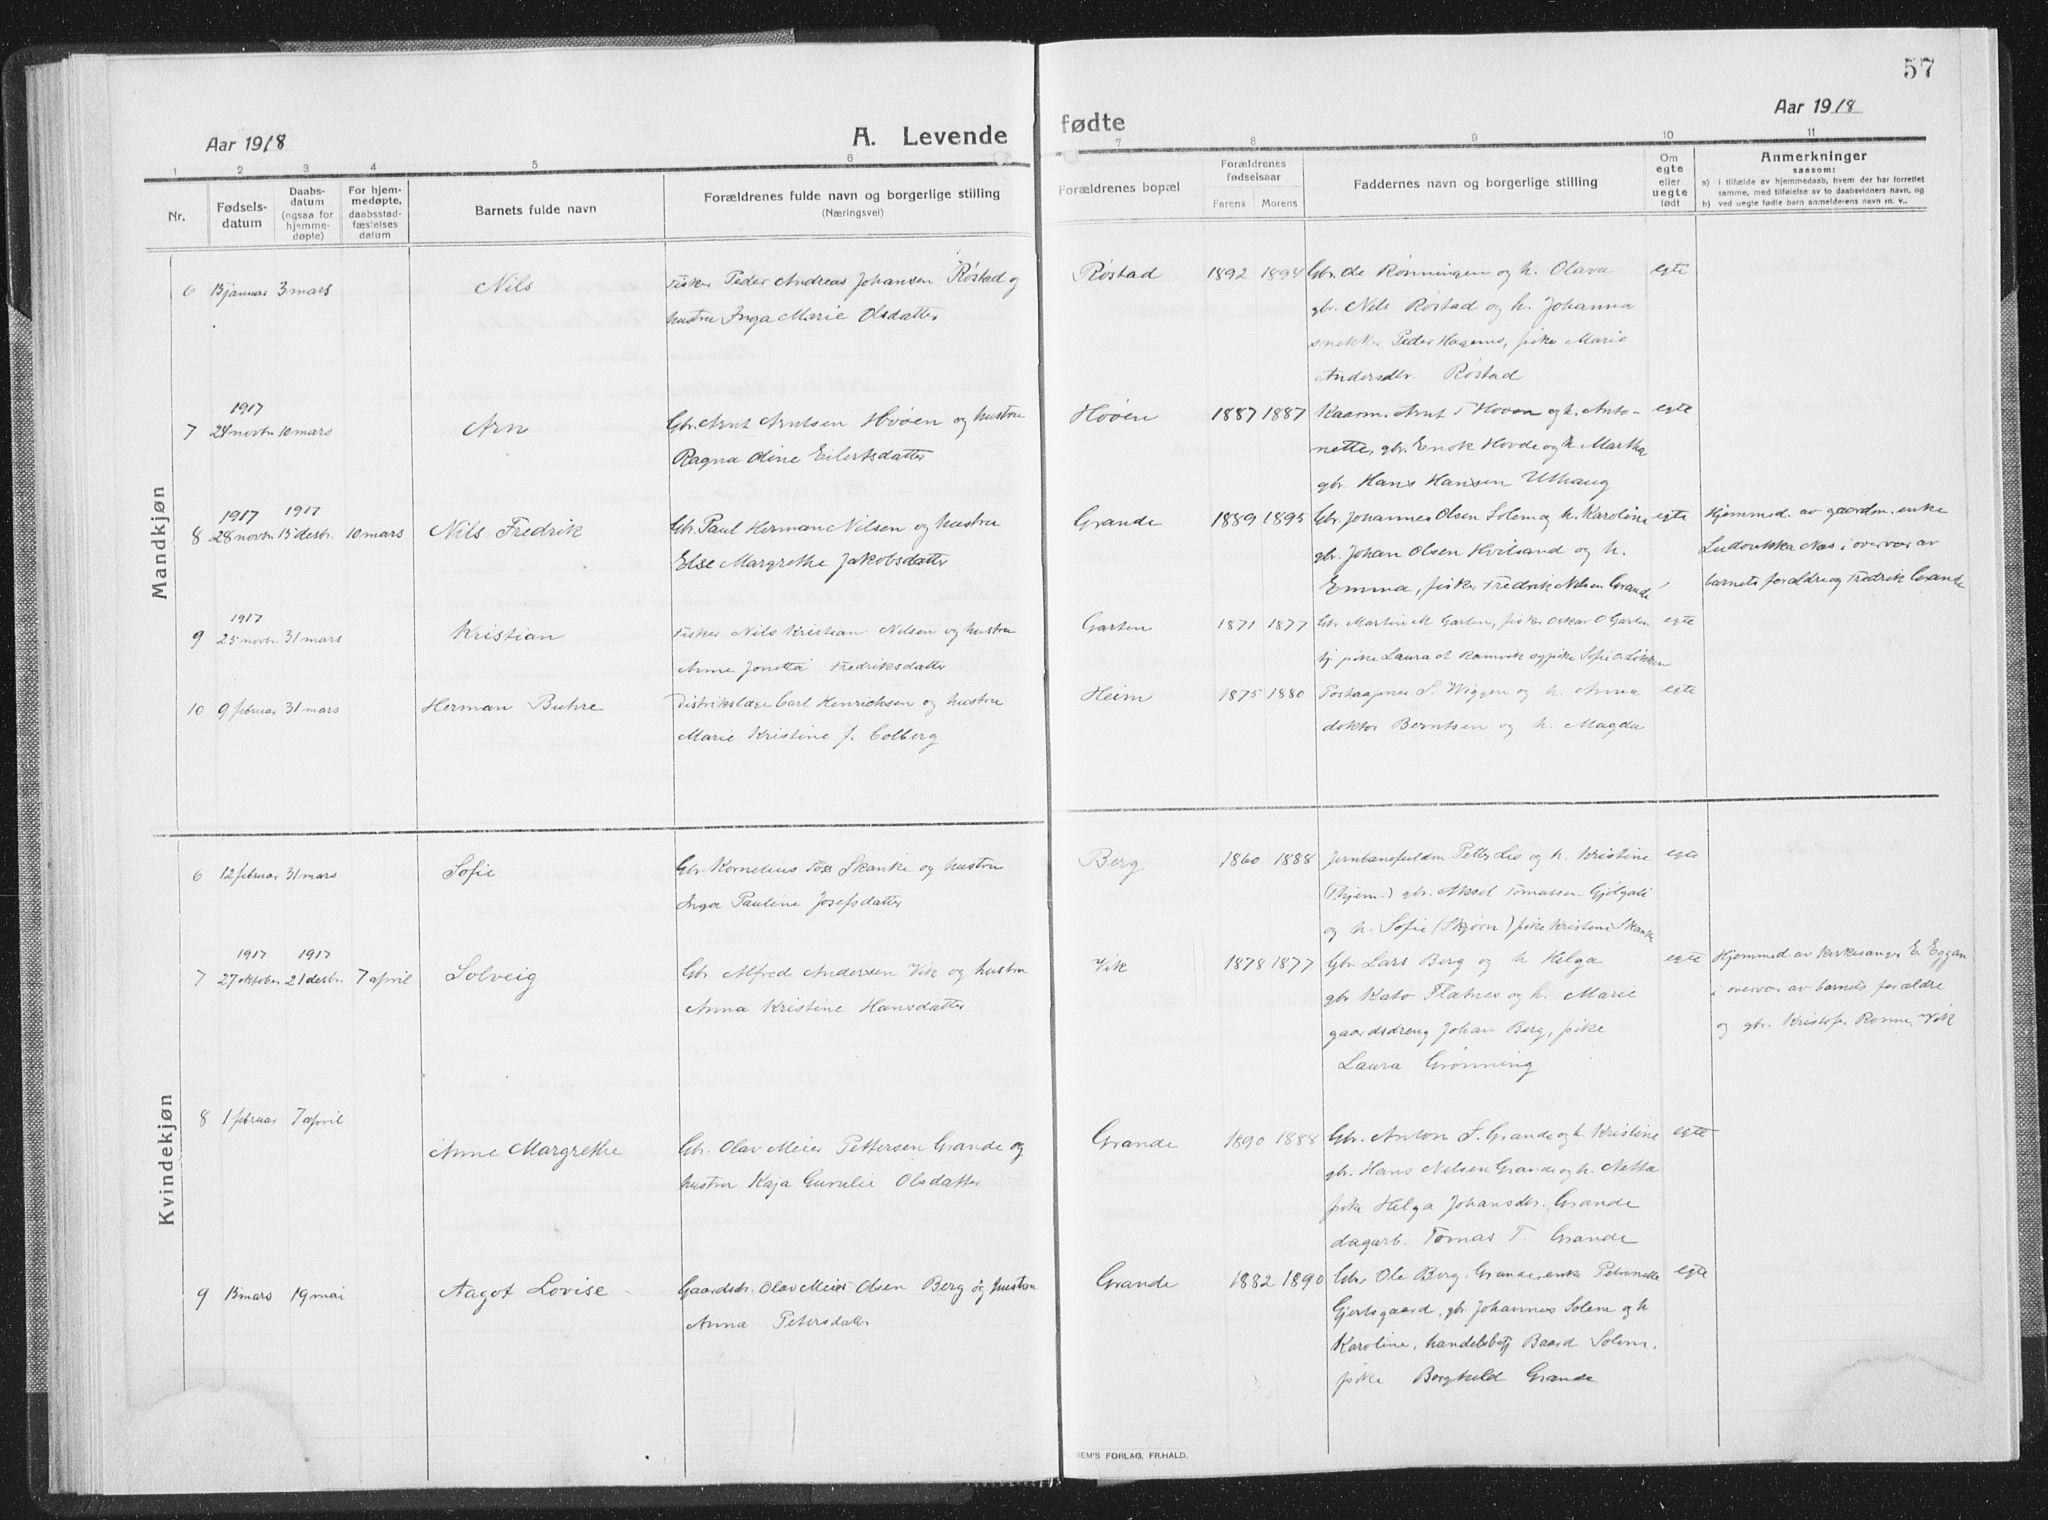 57
Aar 1918
A. Levende
fødte
Aar 1918
1 2 3 4 5 6 7 8 9 10 11
Nr.
Fødsels-
datum
Daabs-
datum
(ogsaa for
hjemme-
døpte)
For hjem-
medøpte,
daabsstad-
fæstelses
datum
Barnets fulde navn
Forældrenes fulde navn og borgerlige stilling
(Næringsvei)
Forældrenes bopæl
Forældrenes
fødselsaar
Farens Morens
Faddernes navn og borgerlige stilling
Om
egte
eller
uegte
født
Anmerkninger
saasom:
a) i tilfælde av hjemmedaab, hvem der har forrettet
samme, med tilføielse av to daabsvidners navn, og
b) ved uegte fødte barn anmelderens navn m. v..
Mandkjøn
6 13 januar 3 mars Nils
Fisker Peder Andreas Johansen Røstad og
hustru Inga Marie Olsdatter
Røstad 1892 1894
Gbr. Ole Rønningen og h. Olava
gbr. Nils Røstad og h. Johanna
snekker Peder Hagens, pike Marie
Andersdtr. Røstad
egte
1917
7 24 novbr. 10 mars Arn
Gbr. Arnt Arntsen Hoven og hustru
Ragna Oline Eilertsdatter
Hoven 1887 1887
Kaarm. Arnt T Hoven og h. Anto-
nette, gbr. Enok Hovde og h. Martha
gbr. Hans Hansen Uthaug
egte
1917 1917
8 28 novbr. 15 desbr. 10 mars Nils Fredrik
Gbr. Paul Herman Nilsen og hustru
Else Margrethe Jakobsdatter
Grande 1889 1895
Gbr. Johannes Olsen Solem og h. Karoline
gbr. Johan Olsen Hvilsand og h.
Emma, fisker Fredrik Nilsen Grande
egte
Hjemmed. av gaardm. enke
Ludovikka Næs i overvær av
barnets forældre og Fredrik Grande
1917
9 25 novbr. 31 mars Kristian
Fisker Nils Kristian Nilsen og hustru
Anne Jonetta Fredriksdatter
Garten 1871 1877
Gbr Martin M Garten, fisker Oskar O Garten
tj. pike Laura O. Ramvik sypike Sofie O. Løkken
egte
10 9 februar 31 mars Herman Buhre
Distriktslæge Carl Henrichsen og hustru
Marie Kristine f. Colberg
Heim 1875 1880
Postaapner S. Wiggen og h. Anna
doktor Berntsen og h. Magda
egte
Kvindekjøn
6 12 februar 31 mars Sofie
Gbr. Kornelius Foss Skanke og hustru
Inga Pauline Josefsdatter
Berg 1860 1888
Jernbanefuldm Petter Lie og h. Kristine
(Thjem-) gbr. Aksel Tomassen Gjølgali
og h. Sofie (Skjørn) pike Kristine Skanke
egte
1917 1917
7 27 oktober 21 desbr. 7 april Solveig
Gbr Alfred Andersen Vik og hustru
Anna Kristine Hansdatter
Vik 1878 1877
Gbr. Lars Berg og h Helga
gbr Kato Flatnes og h. Marie
gaardsdreng Johan Berg, pike
Laura Grønning
egte
Hjemmed av kirkesanger E. Eggan
i overvær av barnets forældre
og gbr. Kristofer Rønne, Vik
8 1 februar 7 april
Anne Margrethe
Gbr. Olav Meier Pettersen Grande og
hustru Kaja Gurulie Olsdatter
Grande 1890 1888
Gbr. Anton S. Grande og h. Kristine
gbr. Hans Nilsen Grande og h. Netta
pike Helga Johansdtr. Grande
dagarb. Tomas T. Grande
egte
9 13 mars 19 mai Aagot Lovise
Gaardsbr. Olav Meier Olsen Berg og hustru
Anna Petersdatter
Grande 1882 1890
Gbr Ole Berg, Grande, enke Petrinelle
Gjertsgaard, gbr. Johannes Solem og h
Karoline, handelsbetj Baard Solem,
pike Borghild Grande
egte
SEM'S FORLAG, FR.HALD.